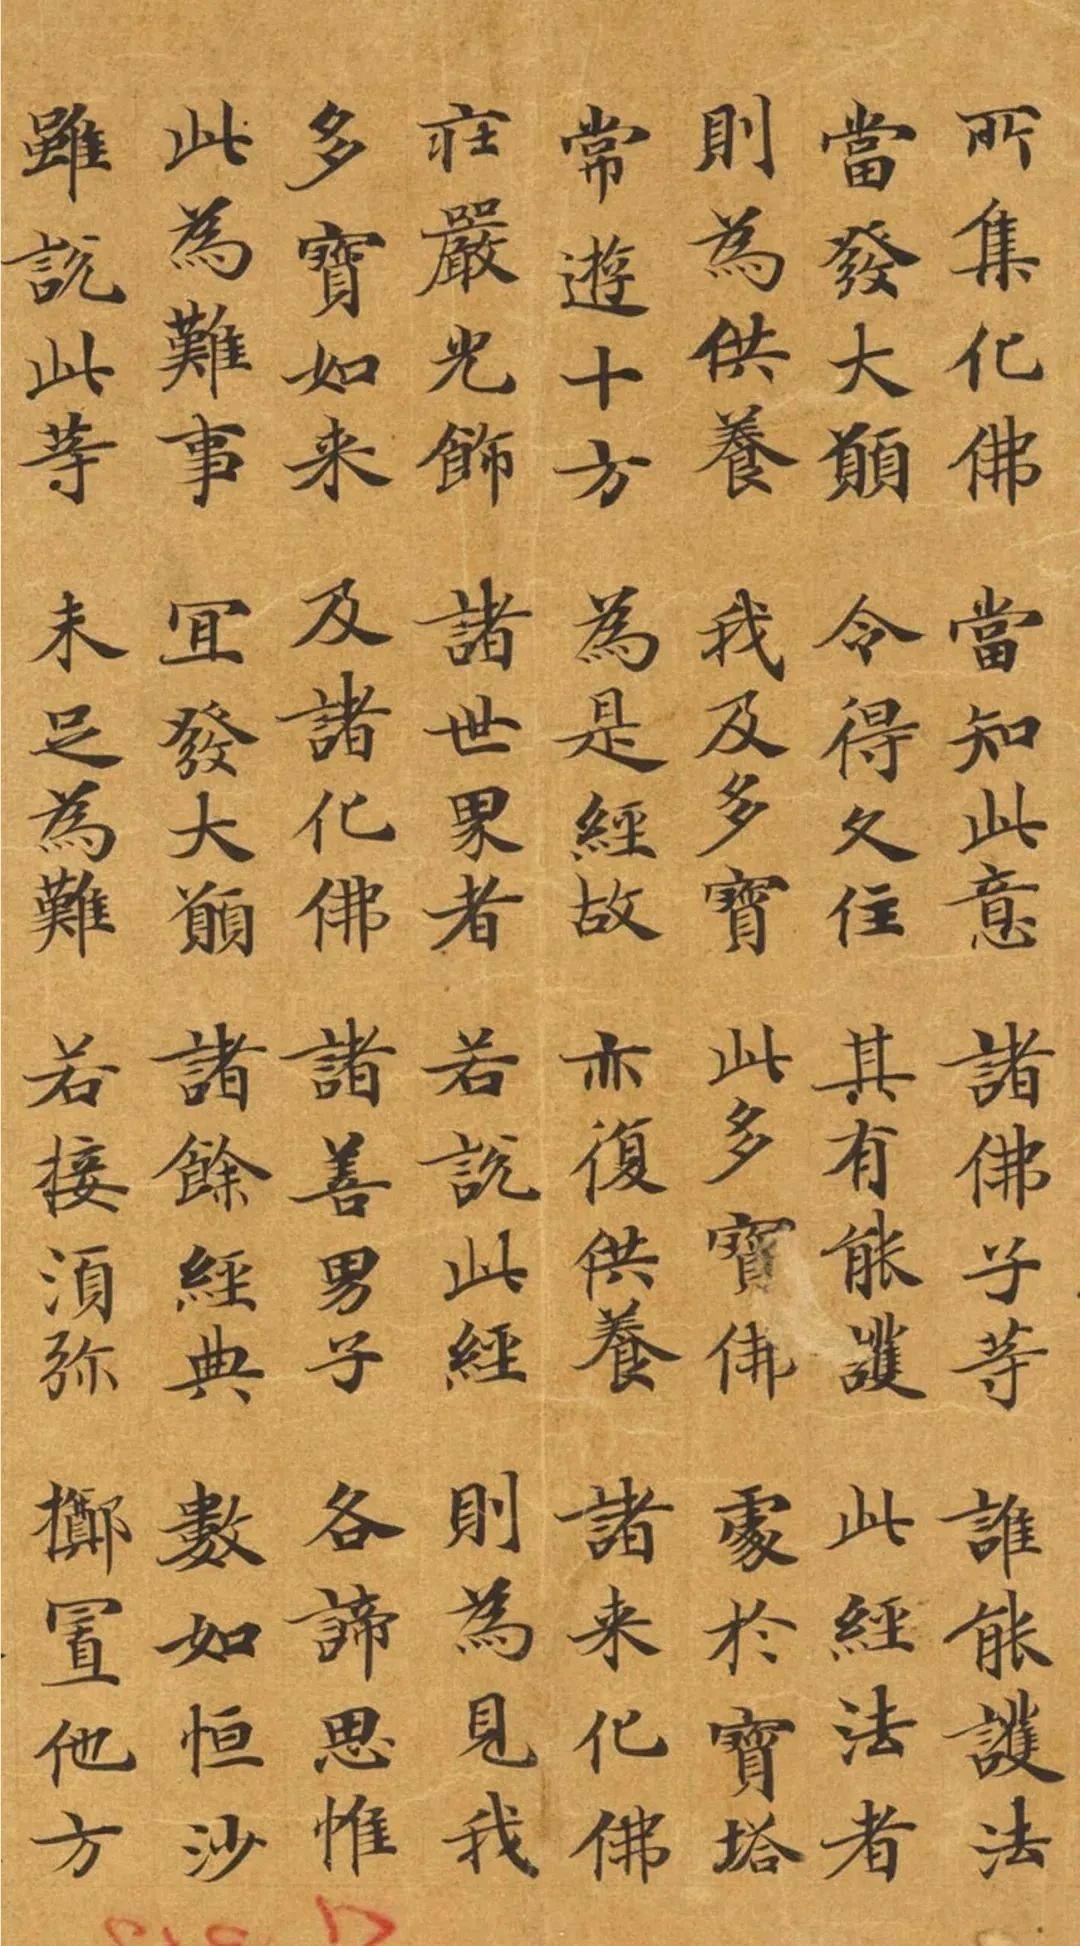 所集化佛 當知此意 諸佛子等 誰能護法
當發大願 令得久住 其有能護 此經法者
則為供養 我及多寶 此多寶佛 處於寶塔
常遊十方 為是經故 亦復供養 諸来化佛
莊嚴光飾 諸世界者 若説此經 則為見我
多寶如来 及諸化佛 諸善男子 各諦思惟
此為難事 宜發大願 諸餘經典 數如恒沙
雖説此等 未足為難 若接須弥 擲置他方